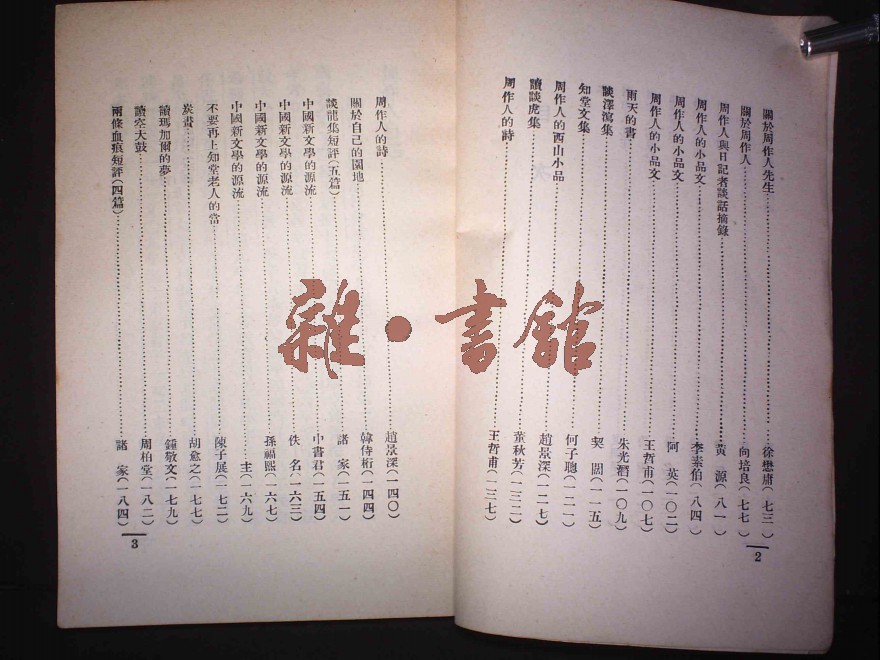 關於周作人先生……徐懋庸(七三)
關於周作人……向培良(七七)
周作人與日記者談話摘錄……黃 源(八一)
周作人的小品文……李素伯(八四)
周作人的小品文……阿 英(一〇二)
周作人的小品文……王哲甫(一〇七)
雨天的書……朱光潛(一〇九)
談澤瀉集……契 閣(一一五)
知堂文集……何子聰(一二一)
周作人的西山小品……趙景深(一二七)
讀談虎集……董秋芳(一三二)
周作人的詩……王哲甫(一三七)
2
周作人的詩……趙景深(一四〇)
關於自己的園地……韓侍桁(一四四)
談龍集短評(五篇)……諸 家(一五一)
中國新文學的源流……中書君(一五四)
中國新文學的源流……佚 名(一六三)
中國新文學的源流……孫福熙(一六七)
中國新文學的源流……主(一六九)
不要再上知堂老人的當……陳子展(一七二)
炭畫……胡愈之(一七七)
讀瑪加爾的夢……鍾敬文(一七九)
讀空大鼓……周柏堂(一八二)
兩條血痕短評(四篇)……諸 家(一八四)
3
雜·書館